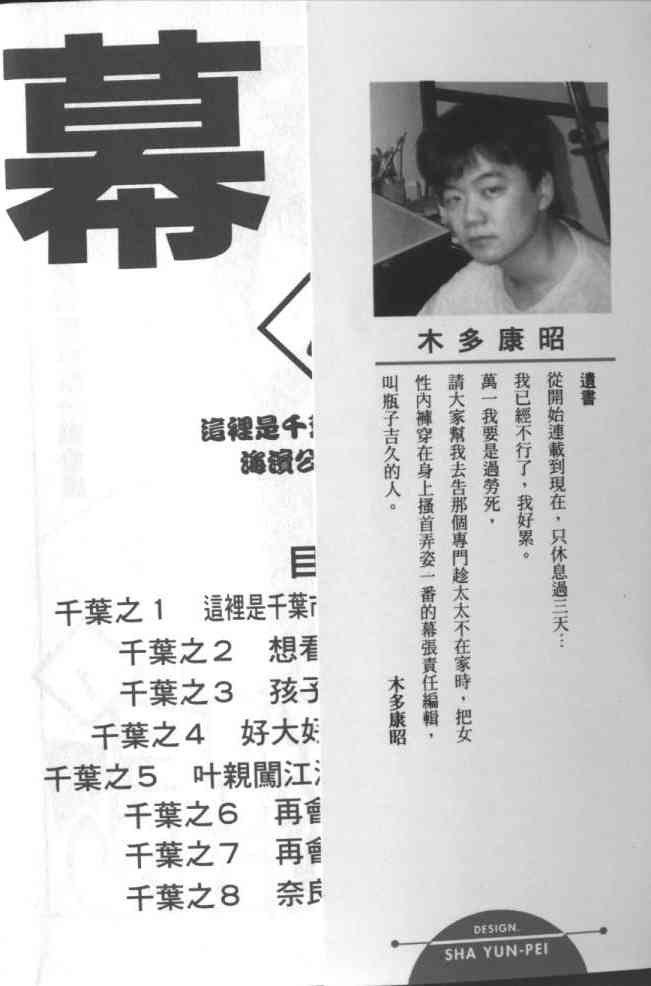 幕
這裡是千
海濱公
目
千葉之1 這裡是千葉市
千葉之2 想看
千葉之3 孩子
千葉之4 好大好
千葉之5 叶親闖江
千葉之6 再會
千葉之7 再會
千葉之8 奈良
木多康昭
遺書
從開始連載到現在，只休息過三天…
我已經不行了，我好累。
萬一我要是過勞死，
請大家幫我去告那個專門趁太太不在家時，把女
性內褲穿在身上搔首弄姿一番的幕張責任編輯，
叫瓶子吉久的人。
木多康昭
DESIGN.
SHA YUN-PEI